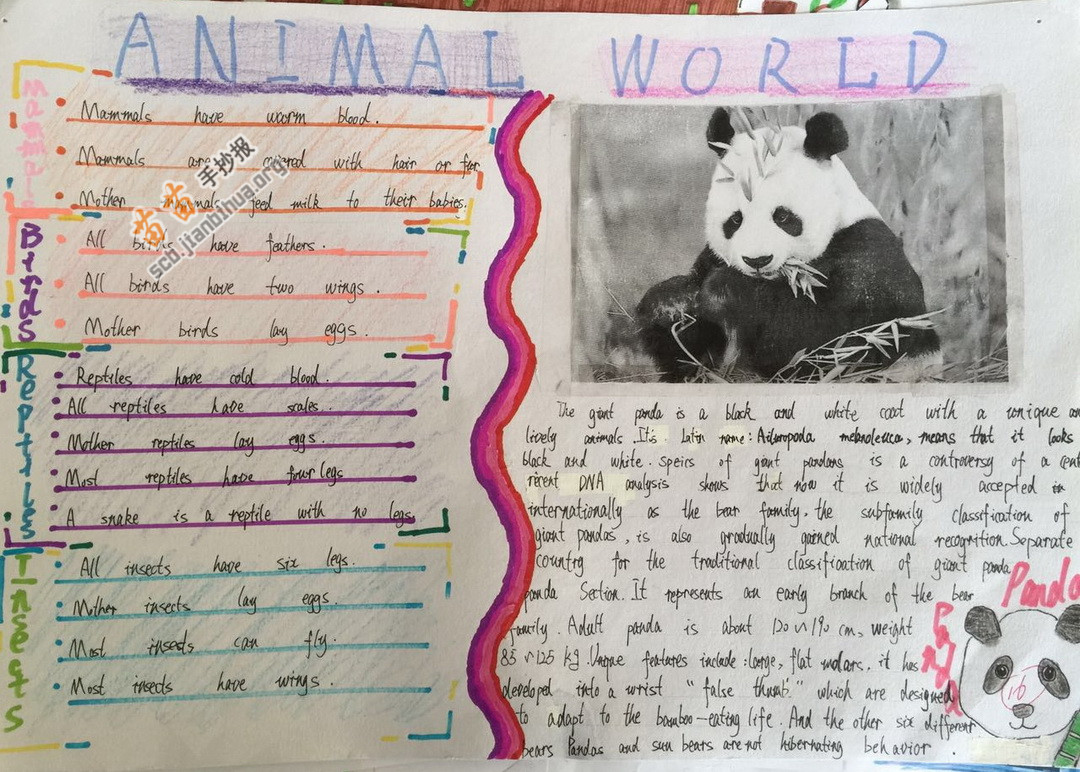 ANIMAL WORLD
Mammals
Mammals have warm blood.
Mammals are covered with hair or fur
Mother mammals feed milk to their babies.
Birds
All birds have feathers.
All birds have two wings.
Mother birds lay eggs.
Reptiles
Reptiles have cold blood.
All reptiles have scales.
Mother reptiles lay eggs.
Most reptiles have four legs
A snake is a reptile with no legs.
Insects
All insects have six legs.
Mother insects lay eggs.
Most insects can fly.
Most insects have wings.
苗苗手抄报
scb.jianbihua.org
The giant panda is a black and white coat with a unique an
lively animals. It's Latin name: Ailuropoda melanoleuca, means that it looks
black and white. speirs of giant pandans is a controversy of a cent
recent DNA analysis shows that now it is widely accepted in
internationally as the bear family. the subfamily classification of
giant pandas, is also gradually gained national recognition. Separate
country for the traditional classification of giant panda
panda Section. It represents an early branch of the bear
family. Adult panda is about 120~190 cm, weight
85~125 kg. Unique features include: large, flat molars, it has
developed into a wrist "false thumb" which are designed
to adapt to the bamboo-eating life. And the other six different
bears Pandas and sun bears are not hibernating behavior.
Panda
Panda